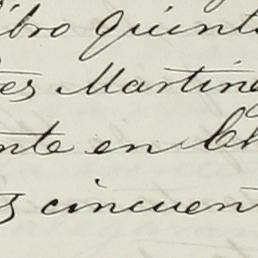 libro quint
es Martine
nte en Ch
s cincuent